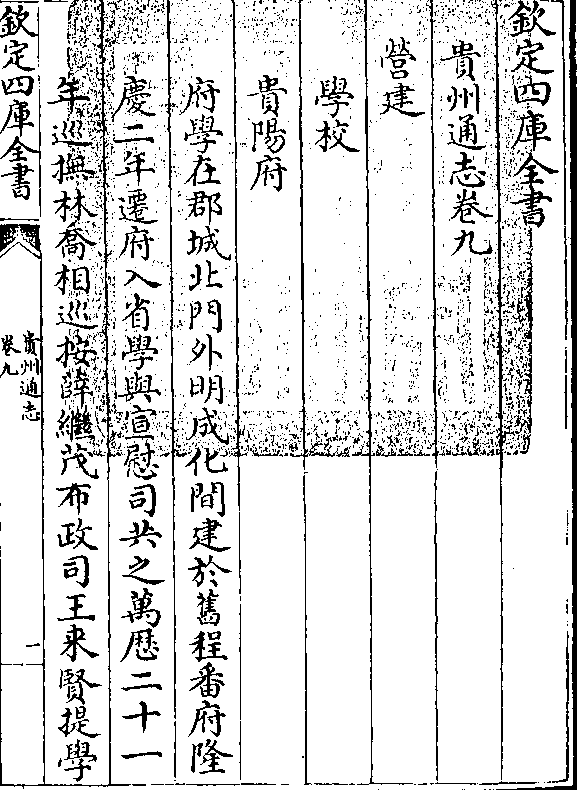 欽定四庫全書
貴州通志卷九
營建
學校
貴陽府
府學在郡城北門外明成化間建於舊程番府隆
慶二年遷府入省學與宣慰司共之萬厯二十一
年巡撫林喬相巡按薛繼茂布政司王来賢提學
欽定四庫全書
貴州通志
卷九
一